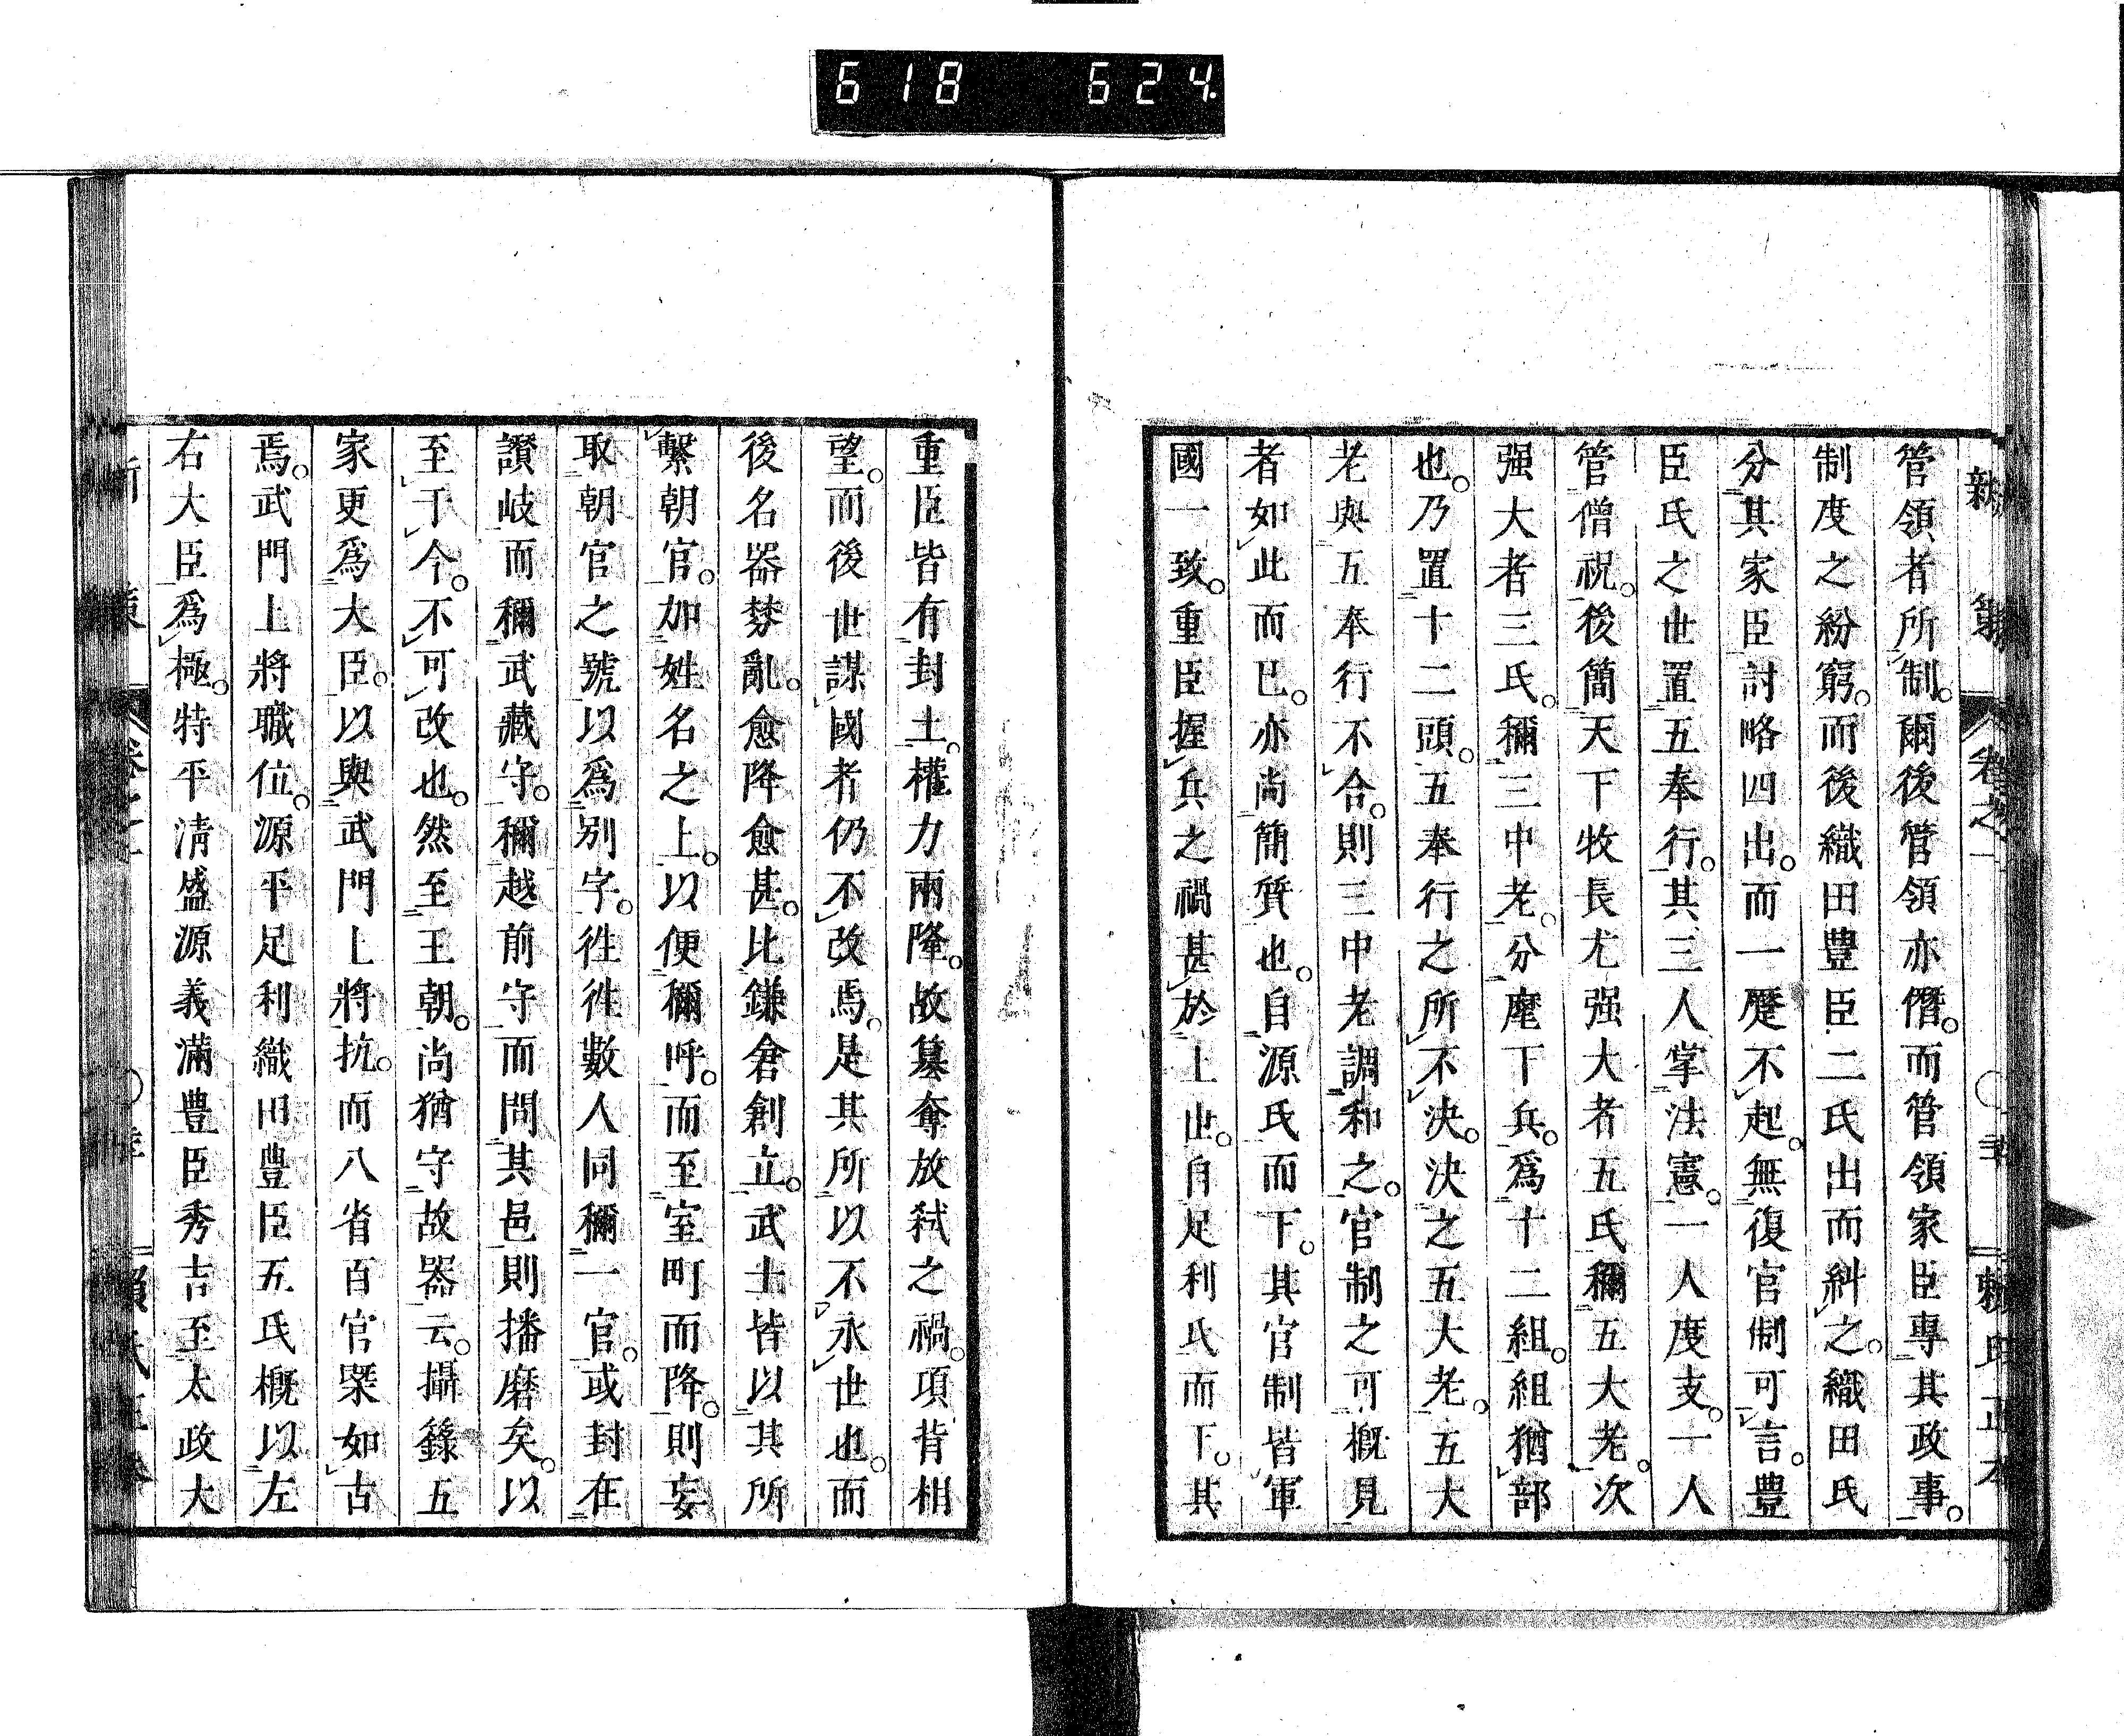 618 624
管領者所制。爾後管領亦僭。而管領家臣專其政事。
制度之紛窮。而後織田豊臣二氏出而糾之。織田氏
分其家臣討略四出。而一蹷不起。無復官制可言。豊
臣氏之世置五奉行。其三人掌法憲。一人度支。一人
管僧祝。後簡天下牧長尤强大者五氏稱五大老。次
强大者三氏。稱三中老。分麾下兵。爲十二組。組猶部
也。乃置十二頭。五奉行之所不決。決之五大老。五大
老與五奉行不合。則三中老調和之。官制之可概見
者如此而已。亦尚簡質也。自源氏而下。其官制皆軍
國一致。重臣握兵之禍甚於上世。自足利氏而下。其
重臣皆有封土。權力兩隆。故簒奪放弑之禍。項背相
望。而後世謀國者仍不改焉。是其所以不永世也。而
後名器棼亂。愈降愈甚。比鎌倉創立。武士皆以其所
繫朝官。加姓名之上。以便稱呼。而至室町而降。則妄
取朝官之號以爲別字。徃徃數人同稱一官。或封在
讃岐而稱武藏守。稱越前守而問其邑則播磨矣。以
至于今。不可改也。然至王朝。尚猶守故器云。攝籙五
家更爲大臣。以與武門上將抗。而八省百官槩如古
焉。武門上將職位。源平足利織田豊臣五氏概以左
右大臣爲極。特平淸盛源義滿豊臣秀吉至太政大